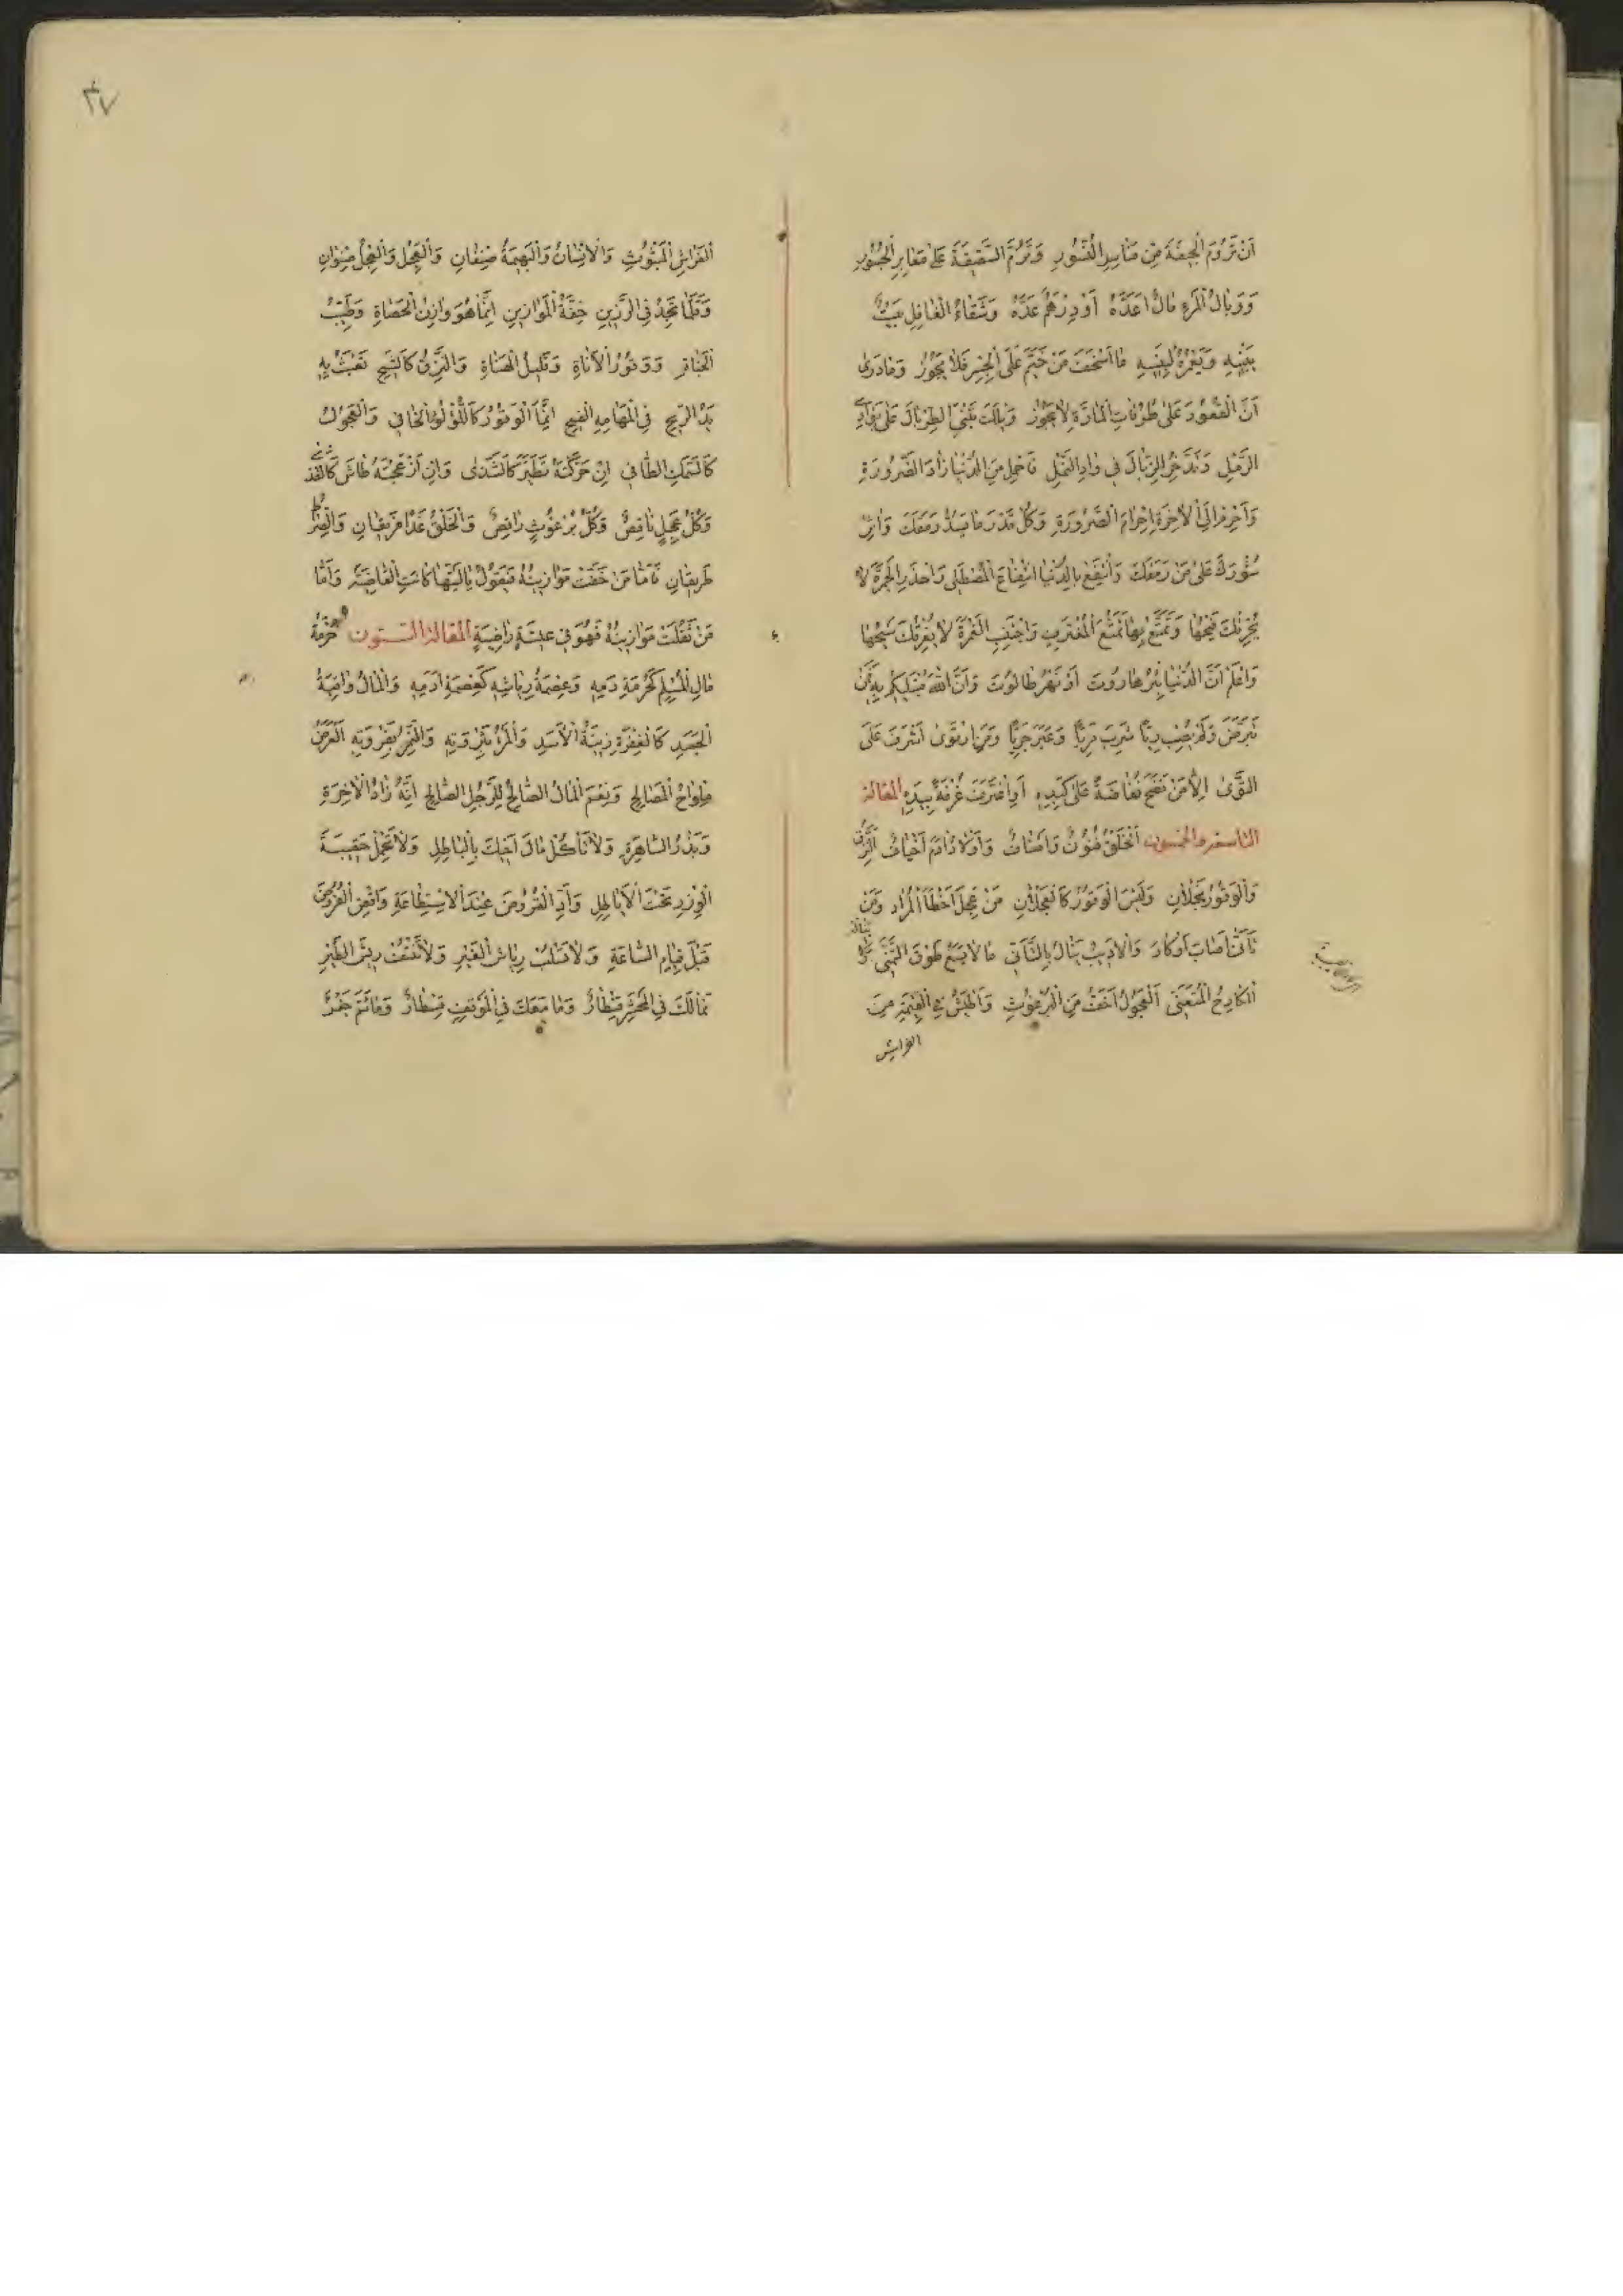 اَنْ تَرُومَ الْجِيفَةَ مِنْ مَنَاسِرِ النُّسُورِ وَتَرُمَّ السَّقِيفَةَ عَلَى مَعَابِرِ الْجُسُورِ
وَوَبَالُ الْمَرْءِ مَالٌ اَعَدَّهُ اَوْ دِرْهَمٌ عَدَّهُ وَشَقَاءُ الْغَافِلِ بَيْتٌ
يَبْنِيهِ وَيَعْمُرُهُ لِبَنِيهِ مَا اَسْخَفَ مَنْ خَيَّمَ عَلَى الْجِسْرِ فَلَا يَجُوزُ وَمَا دَرَى
اَنَّ الْقُعُودَ عَلَى طُرُقَاتِ الْمَارَّةِ لَا يَجُوزُ وَيَا لَكَ تَبْنِي الطِّرْبَالَ عَلَى
الرَّمْلِ وَتَدَّخِرُ الزِّبَالَ فِي وَادِ النَّمْلِ فَاحْمِلْ مِنَ الدُّنْيَا زَادَ الضَّرُورَةِ
وَاَحْرِمْ اِلَى الْآخِرَةِ اِحْرَامَ الصَّرُورَةِ وَكُلْ قَدْرَ مَا يَسُدُّ رَمَقَكَ وَاٰثِرْ
سُؤْرَكَ عَلَى مَنْ رَمَقَكَ وَانْتَفِعْ بِالدُّنْيَا انْتِفَاعَ الْمُصْطَلِي وَاحْذَرِ الْجَمْرَةَ لَا
يُحْرِقْكَ فَيْحُهَا وَتَمَتَّعْ بِهَا تَمَتُّعَ الْمُغْتَرِفِ وَاجْتَنِبِ الْغَمْرَةَ لَا يُغْرِقْكَ سَيْحُهَا
وَاعْلَمْ اَنَّ الدُّنْيَا بِئْرُ هَارُوتَ اَوْ نَهْرُ طَالُوتَ وَاَنَّ اللّٰهَ مُبْتَلِيكُمْ بِهِ فَمَنْ
تَبَرَّضَ وَلَمْ يُصِبْ رِيًّا شَرِبَ مَرِيًّا وَعَبَرَ جَرِيًّا وَمَنِ ارْتَوَى اَشْرَفَ عَلَى
التَّوَى اِلَّا مَنْ نَضَحَ نُفَاضَةً عَلَى كَبِدِهِ اَوِ اغْتَرَفَ غُرْفَةً بِيَدِهِ المقالة
التاسعة والخمسون اَلْخَلْقُ فُنُونٌ وَاَصْنَافٌ وَاَوْلَادُ اٰدَمَ اَخْيَافٌ اَلنَّزِقُ
وَالْوَقُورُ رَجُلَانِ وَلَيْسَ الْوَقُورُ كَالْعَجْلَانِ مَنْ عَجِلَ اَخْطَأَ الْمُرَادَ وَمَنْ
تَاَنَّى اَصَابَ اَوْ كَادَ وَالْاَدِيبُ يَنَالُ بِالتَّاَنِّي مَا لَا يَسَعُ طَوْقَ التَّمَنِّي
الْكَادِحُ الْمُتَعَنِّي اَلْعَجُولُ اَخَفُّ مِنَ الْبُرْغُوثِ وَالطَّيْشُ فِي الْقِيٰمَةِ مِنَ
الفراش
٤٧
الْفَرَاشِ الْمَبْثُوثِ وَالْاِنْسَانُ وَالْبَهِيمَةُ صِنْفَانِ وَالْعَجَلُ وَالْعِجْلُ صِنْوَانِ
وَقَلَّمَا تَجِدُ فِي الرَّزِينِ خِفَّةَ الْمَوَازِينِ اِنَّمَا هُوَ وَازِنُ الْحَصَاةِ وَطَيِّبُ
وَوَقُورُ الْاَنَاةِ وَقَلِيلُ الْهَنَاةِ وَالنَّزِقُ كَالشِّيحِ تَعْبَثُ بِهِ
يَدُ الرِّيحِ فِي الْمَهَامِهِ الْفِيحِ اِنَّمَا الْوَقُورُ كَاللُّؤْلُؤِ الْخَافِي وَالْعَجُولُ
كَالسَّمَكِ الطَّافِي اِنْ حَرَّكْتَهُ تَطَيَّرَ كَالشَّذَى وَاِنْ اَزْعَجْتَهُ طَاشَ كَالْقَذَى
وَكُلُّ عَجِلٍ نَاقِصٌ وَكُلُّ بُرْغُوثٍ رَاقِصٌ وَالْخَلْقُ غَدًا فَرِيقَانِ وَالصِّرَاطُ
طَرِيقَانِ فَاَمَّا مَنْ خَفَّتْ مَوَازِينُهُ فَيَقُولُ يَا لَيْتَهَا كَانَتِ الْقَاضِيَةَ وَاَمَّا
مَنْ ثَقُلَتْ مَوَازِينُهُ فَهُوَ فِي عِيشَةٍ رَاضِيَةٍ المقالة الستون حُرْمَةُ
مَالِ الْمُسْلِمِ كَحُرْمَةِ دَمِهِ وَعِصْمَةُ رِيَاشِهِ كَعِصْمَةِ اَدَمِهِ وَالْمَالُ وَاقِيَةُ
الْجَسَدِ كَالْعِفْرَةِ زِينَةُ الْاَسَدِ وَالْمَرْءُ بِثَرْوَتِهِ وَالنَّمِرُ بِفَرْوَتِهِ اَلْعَرَضُ
مِلْوَاحُ الْمَصَالِحِ وَنِعْمَ الْمَالُ الصَّالِحُ لِلرَّجُلِ الصَّالِحِ اِنَّهُ زَادُ الْآخِرَةِ
وَبَذْرُ السَّاهِرَةِ وَلَا تَأْكُلْ مَالَ اَخِيكَ بِالْبَاطِلِ وَلَا تَحْمِلْ حَقِيبَةَ
الْوِزْرِ تَحْتَ الْاٰبَاطِلِ وَاَدِّ الْقُرُوضَ عِنْدَ الْاِسْتِطَاعَةِ وَاقْضِ الْفُرُوضَ
قَبْلَ قِيَامِ السَّاعَةِ وَلَا تَسْلُبْ رِيَاشَ الْغَيْرِ وَلَا تَنْتِفْ رِيشَ الطَّيْرِ
فَمَا لَكَ فِي الْمَحْشَرِ قِنْطَارٌ وَمَا مَعَكَ فِي الْمَوْقِفِ قِسْطَارٌ وَمَا ثَمَّ